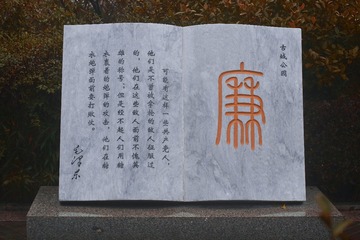 古城公园
廉
可能有这样一些共产党人，
他们是不曾被拿枪的敌人征服过
的，他们在这些敌人面前不愧英
雄的称号；但是经不起人们用糖
衣裹着的炮弹的攻击，他们在糖
衣炮弹面前要打败仗。
毛泽东